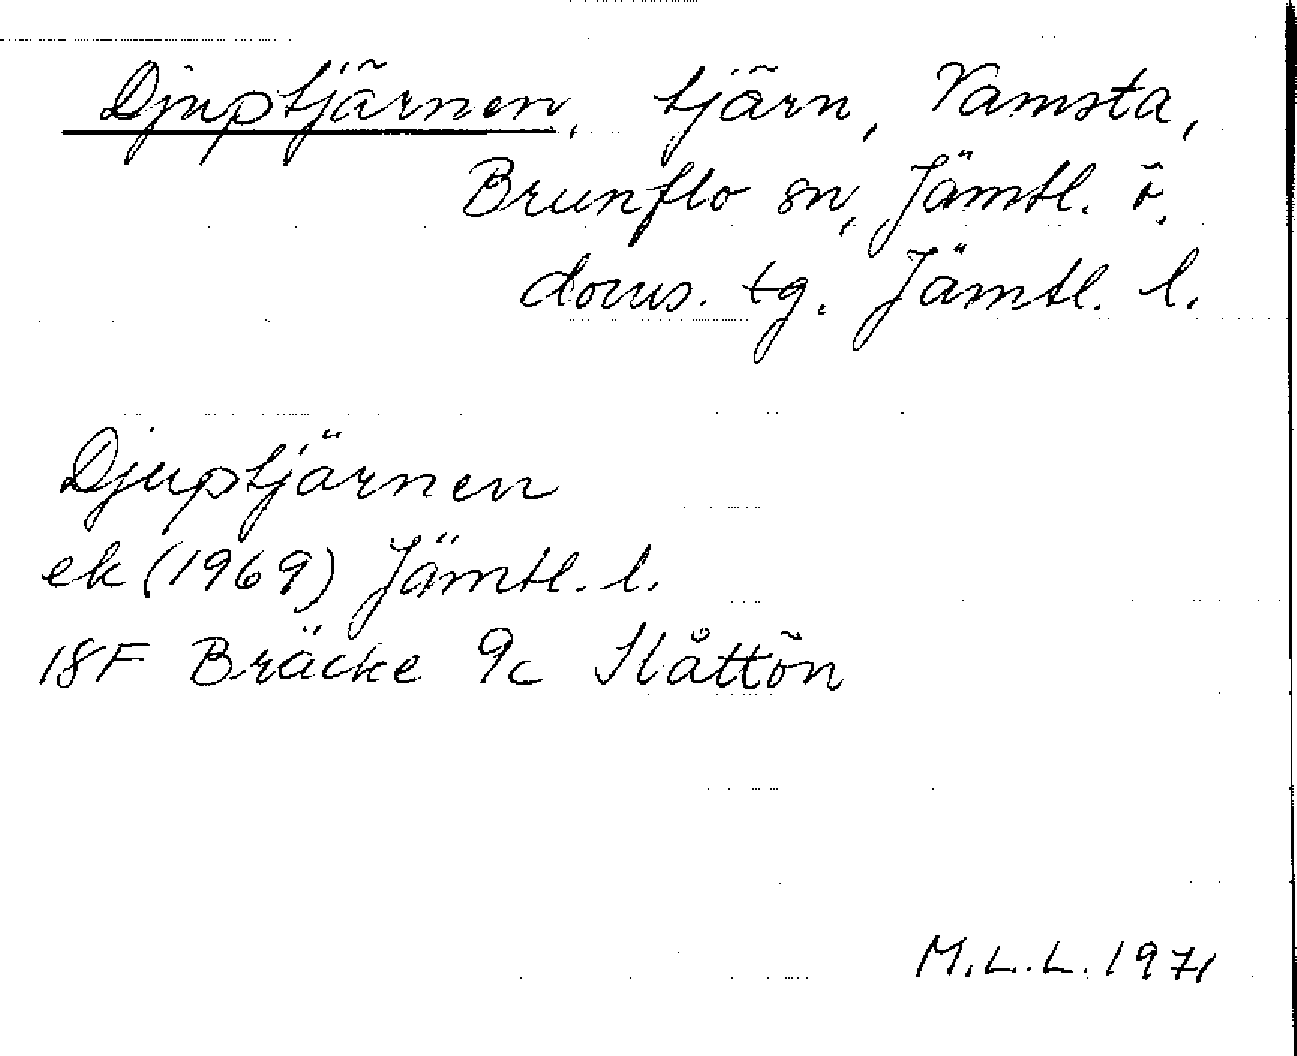 Djuptjärnen, tjärn, Vamsta,
Brunflo sn, Jämtl. ö.
doms. tg. Jämtl. l.
Djuptjärnen
ek (1969) Jämtl. l.
18F Bräcke 9c Slåttön
M.L.L. 1971